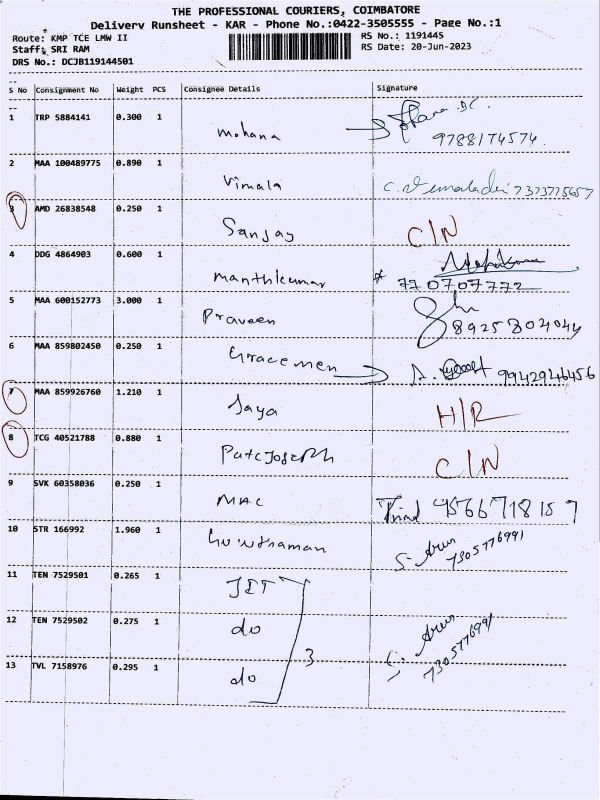 THE PROFESSIONAL COURIERS, COIMBATORE
Delivery Runsheet - KAR - Phone No.:0422-3505555 - Page No.:1
Route: KMP TCE LMW II
RS No.: 1191445
Staff: SRI RAM
RS Date: 20-Jun-2023
DRS No.: DCJB119144501
S No Consignment No Weight PCS Consignee Details Signature
1 TRP 5884141 0.300 1 Mohana
9788174574
2 MAA 100489775 0.890 1 Vimala
7373775657
3 AMD 26838548 0.250 1 Sanjay C/N
4 DDG 4864903 0.600 1 Manthikumar
770707772
5 MAA 600152773 3.000 1 Praveen
8925804044
6 MAA 859802450 0.250 1 Gracemen
9942946456
7 MAA 859926760 1.210 1 Jaya H/R
8 TCG 40521788 0.880 1 C/N
9 SVK 60358036 0.250 1 MAC
9566718157
10 STR 166992 1.960 1
S. Arun
7305776991
11 TEN 7529501 0.265 1 JET
12 TEN 7529502 0.275 1 do
S. Arun
7305776991
3
13 TVL 7158976 0.295 1 do